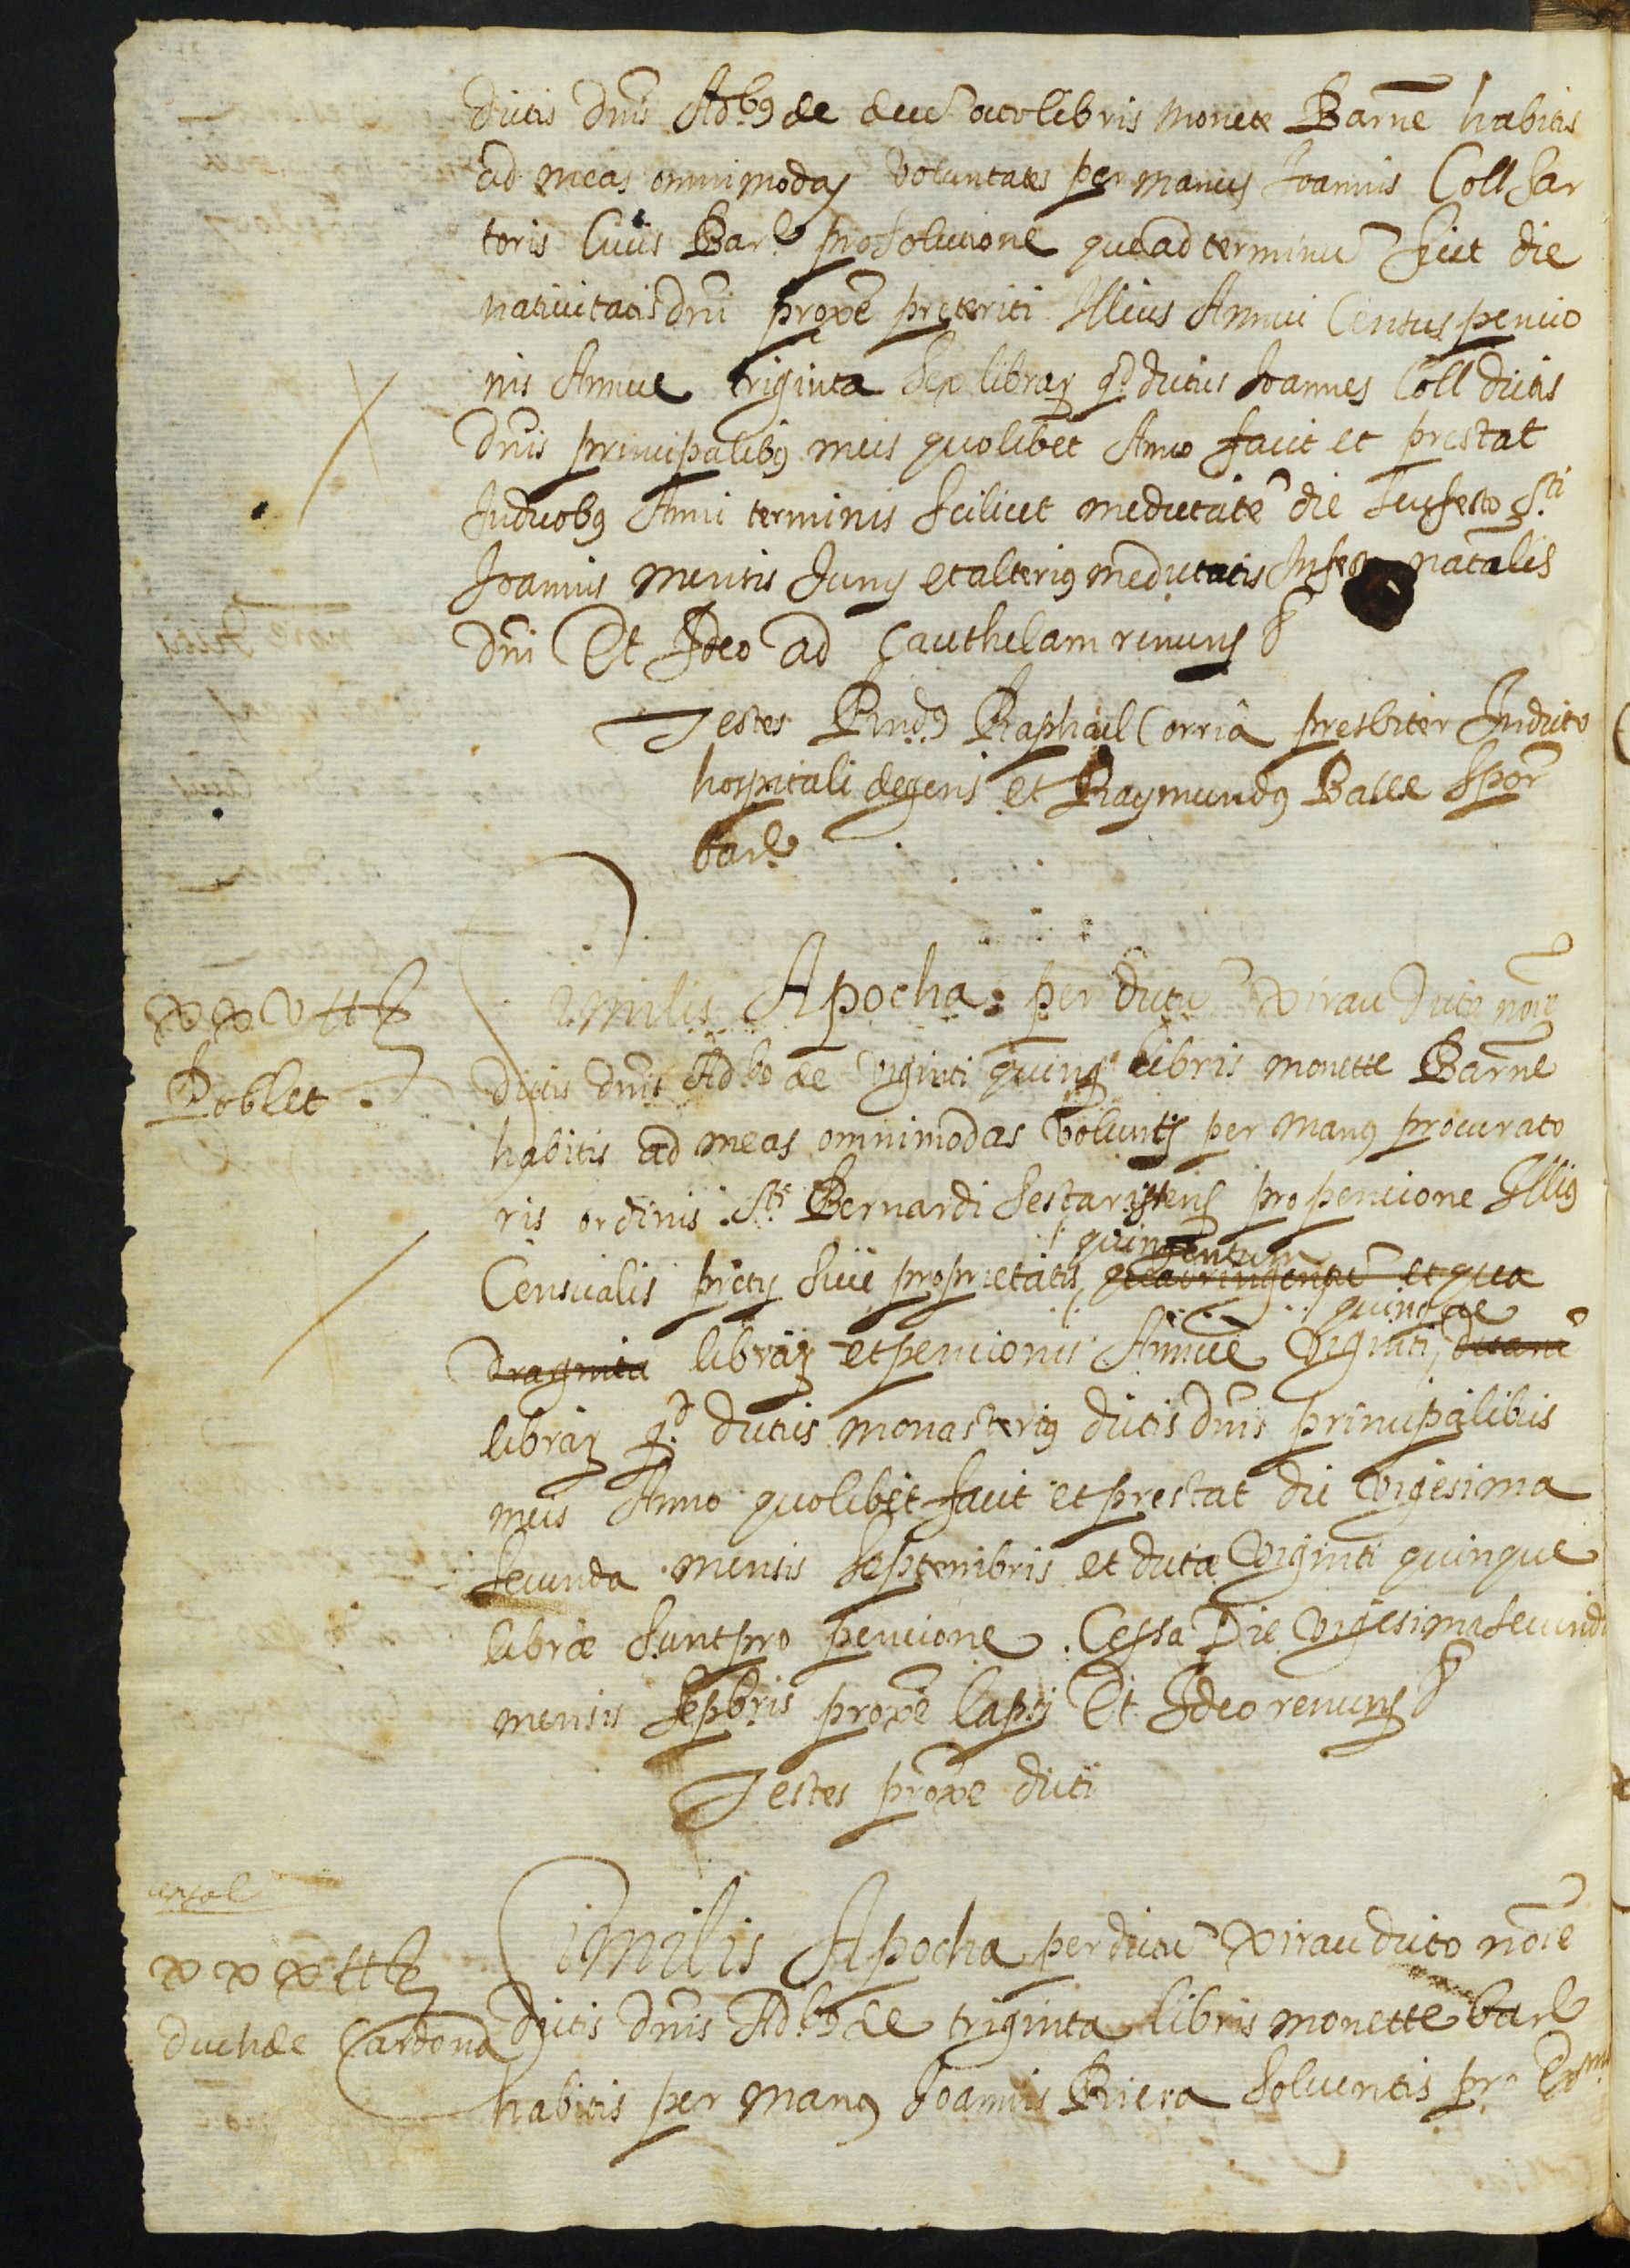 dictis dnis Adbꝯ de decē octo libris monete Barne habitis
ad meas omnimodas voluntates per manus Joannis Coll Sar
toris Civis Barᵉ pro solutione que ad terminū fuit die
nativitatis dni proxe preteriti Illius Annui Census pencio
nis Annue triginta sex librarꝫ qᵈ dictus Joannes Coll dictis
dnis principalibꝯ meis quolibet Anno facit et prestat
Induobꝯ Anni terminis scilicet medietatē die Infesto Sti
Joannis mensis Junij et alteriꝯ medietatis Infesto natalis
Dni Et Ideo ad Cauthelam renuns &
Testes Rndꝯ Raphael Corria presbiter Indicto
hospitali degens et Raymundꝯ Balle Spor
barᵉ
Similis Apocha per dictū Xirau dicto noīe
dictis dnis Adbꝯ de viginti quinqꝫ libris monette Barne
habitis ad meas omnimodas volunts per manꝯ procurato
ris ordinis Sti Bernardi Sestaristens pro pencione Illiꝯ
quingentum
Censualis pretij Sive proprietatis quadringentū et qua
quinque
draginta librarꝫ et pencionis Annue viginti
librarꝫ qᵈ dictus monasteriꝯ dictis dnis principalibus
meis Anno quolibet facit et prestat die vigesima
secunda mensis Septembris et dictæ viginti quinque
libræ sunt pro pencione Cessa Die vigesima secunda
mensis Sepbris proxe lapsi Et Ideo renuns &
Testes proxe dicti
Similis Apocha per dictū Xirau dicto noīe
dictis dnis Adbꝯ de triginta libris monette barᵉ
habitis per manꝯ Joannis Riera solventis pro
xxv ll
Poblet
xxx ll
Duch de Cardona